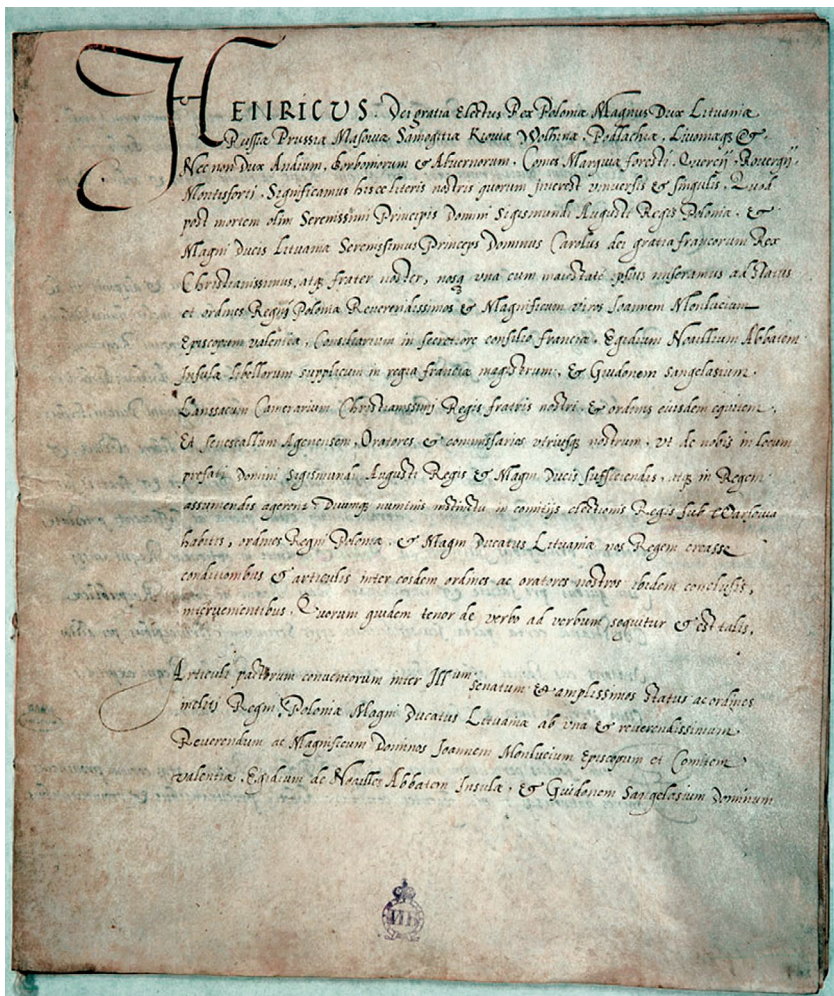 HENRICUS. Dei gratia Electus Rex Poloniæ Magnus Dux Lituaniæ
Russiæ Prussiæ Masoviæ Samogitiæ Kioviæ Wolhinæ. Podlachiæ. Livoniæq3 &.
Nec non Dux Andium. Borboniorum & Alvernorum. Comes Marquia foresti. Quercij. Rovergij.
Montisforti. Significamus hisce literis nostris quorum interest universis & singulis. Quod
post mortem olim Serenissimi Principis Domini Sigismundi Augusti Regis Poloniæ. &
Magni Ducis Lituaniæ Serenissimus Princeps Dominus Carolus dei gratia francorum Rex
Christianissimus, atq3 frater noster, nosq3 vna cum maiestate ipsius miseramus ad Status
et ordines Regnij Poloniæ Reverendissimos & Magnificum viros Ioannem Monlucium
Episcopum valentiæ. Consiliarium in secretiore consilio franciæ. Egidium Noaillium Abbatem
Insulæ libellorum supplicum in regia franciæ magistrum. & Guidonem Sangelasium.
Lanssacum Camerarium Christianissimj Regis fratris nostri. & ordinis eiusdem equitem.
Et senescallum Agenensem. Oratores & commissarios vtriusq3 nostrum. vt de nobis in locum
prefati Domini Sigismundi Augusti Regis & Magni Ducis sufficiendis, atq3 in Regem
assumendis agerent. Divinoq3 numinis instinctu in comitijs electionis Regis sub Varsovia
habitis, ordines Regni Poloniæ. & Magni Ducatus Lituaniæ nos Regem creasse
conditionibus & articulis inter eosdem ordines ac oratores nostros ibidem conclusis,
intervenientibus. Quorum quidem tenor de verbo ad verbum sequitur & est talis.
Articuli pactorum conventorum inter Illum Senatum & amplissimos Status ac ordines
incliti Regni Poloniæ Magni Ducatus Lituaniæ ab vna & reverendissimum
Reverendum ac Magnificum Dominos Ioannem Monlucium Episcopum et Comitem
valentiæ. Egidium de Noailles Abbatem Insulæ. & Guidonem Sangelasium Dominum